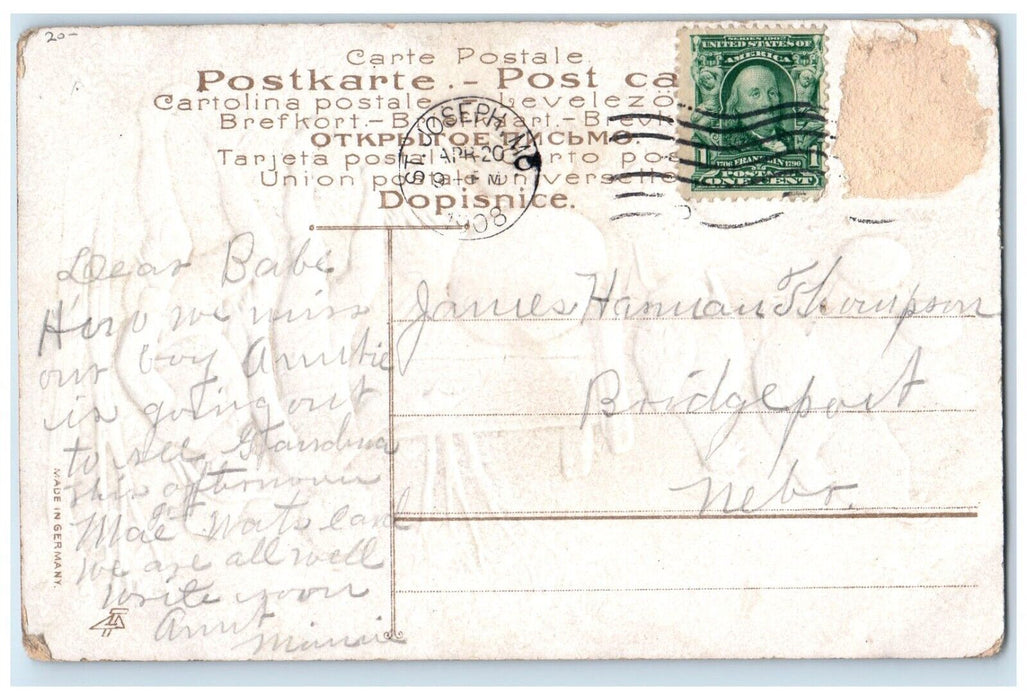 20-
Carte Postale
Postkarte - Post ca
Cartolina postale - Levelező
Brefkort - Br kart - Brevk
ОТКРЫТОЕ ПИСЬМО
Tarjeta postal rto pos
Union postale universelle
Dopisnice.
ST. JOSEPH, MO
APR 20
9 PM
1908
SERIES 1902
UNITED STATES OF
AMERICA
1706 FRANKLIN 1790
1 1
POSTAGE
ONE CENT
Dear Babe
we miss
our boy Auntie
is going out
to see Grandma
this afternoon
Mae
we are all well
write soon
Aunt
Minnie
James Hannan Thompson
Bridgeport
Nebr.
MADE IN GERMANY.